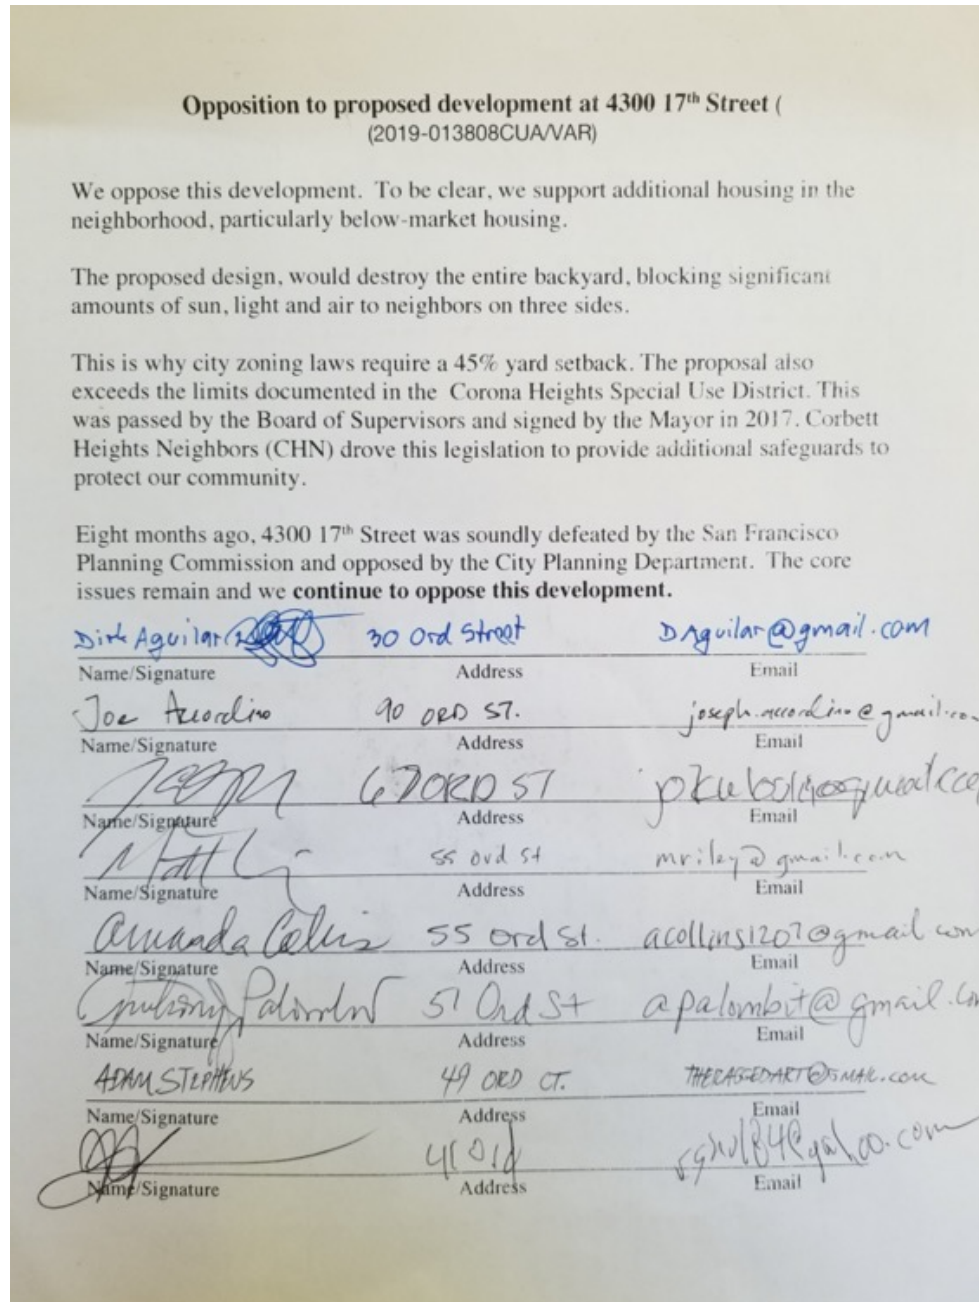 Opposition to proposed development at 4300 17th Street (
(2019-013808CUA/VAR)
We oppose this development. To be clear, we support additional housing in the
neighborhood, particularly below-market housing.
The proposed design, would destroy the entire backyard, blocking significant
amounts of sun, light and air to neighbors on three sides.
This is why city zoning laws require a 45% yard setback. The proposal also
exceeds the limits documented in the Corona Heights Special Use District. This
was passed by the Board of Supervisors and signed by the Mayor in 2017. Corbett
Heights Neighbors (CHN) drove this legislation to provide additional safeguards to
protect our community.
Eight months ago, 4300 17th Street was soundly defeated by the San Francisco
Planning Commission and opposed by the City Planning Department. The core
issues remain and we continue to oppose this development.
Dirk Aguilar 30 Ord Street DAguilar@gmail.com
Name/Signature Address Email
Joe Accordino 90 ORD ST. joseph.accordino@gmail.co
Name/Signature Address Email
67 ORD ST
Name/Signature Address Email
Matt 55 ord st mriley@gmail.com
Name/Signature Address Email
Amanda Collins 55 Ord St. acollins1207@gmail.com
Name/Signature Address Email
Anthony Palombit 51 Ord St apalombit@gmail.co
Name/Signature Address Email
ADAM STEPHENS 49 ORD CT. THERAGGEDART@GMAIL.COM
Name/Signature Address Email
41 Ord
Name/Signature Address Email